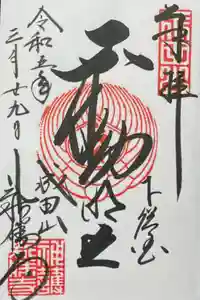 奉拝
下総国
不動明王
成田山
新勝寺
令和五年
三月廿九日